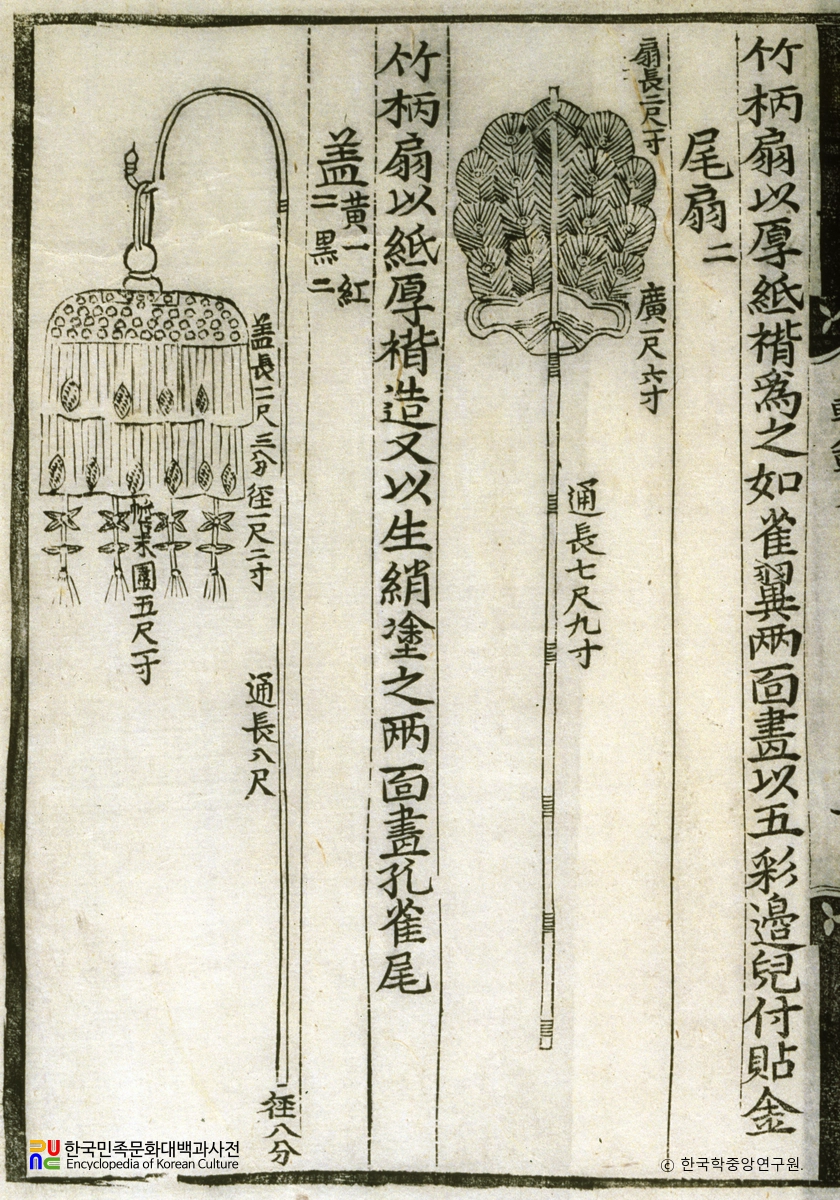 竹柄扇以厚紙楷爲之如雀翼两面畫以五彩邉兒付貼金
尾扇二
扇長二尺一寸
廣一尺六寸
通長七尺九寸
竹柄扇以紙厚楷造又以生綃塗之两面畫孔雀尾
盖黄一紅二黑二
盖長二尺三分徑一尺二寸
末圍五尺一寸
通長八尺
徑八分
한국민족문화대백과사전
Encyclopedia of Korean Culture
ⓒ 한국학중앙연구원.